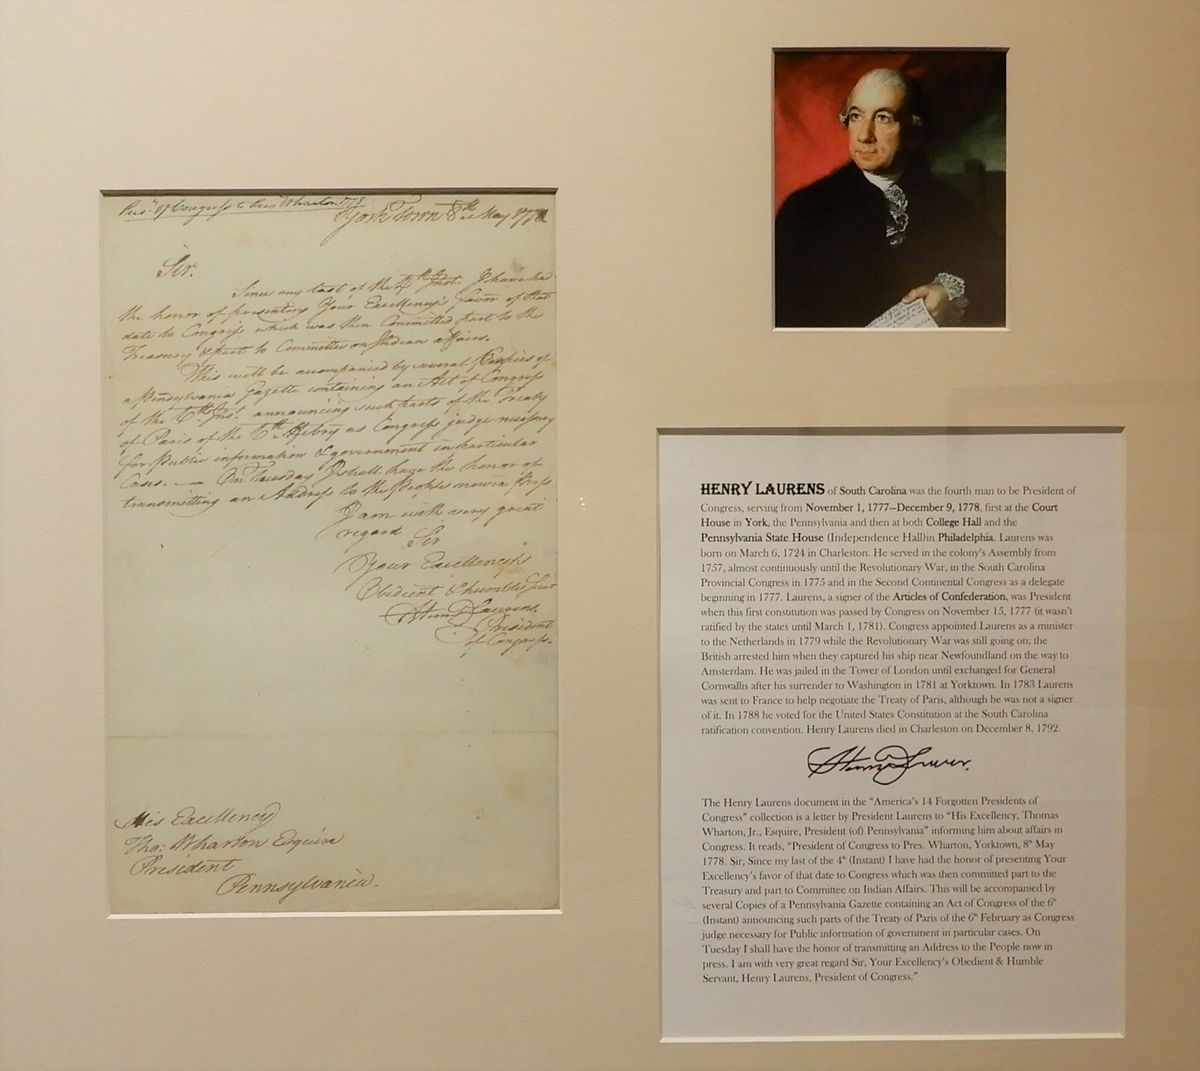 Presᵗ of Congress to Pres Wharton 1778
York Town 8th May 1778
Sir.
Since my last of the 4th Inst. I have had
the honor of presenting Your Excellency's favor of that
date to Congress which was then Committed part to the
Treasury & part to Committee on Indian affairs.
This will be accompanied by several Copies of
a Pensylvania Gazette containing an Act of Congress
of the 6th Inst. announcing such parts of the Treaty
of Paris of the 6th Febry as Congress judge necessary
for Public information & government in particular
Cases. — On Tuesday I shall have the honor of
transmitting an Address to the People now in Press
I am with very great
regard Sir
Your Excellency's
Obedient & humble Servt
Henry Laurens,
President
of Congress.
His Excellency
Tho: Wharton Esquire
President
Pennsylvania.
HENRY LAURENS of South Carolina was the fourth man to be President of
Congress, serving from November 1, 1777–December 9, 1778, first at the Court
House in York, the Pennsylvania and then at both College Hall and the
Pennsylvania State House (Independence Hall)in Philadelphia. Laurens was
born on March 6, 1724 in Charleston. He served in the colony's Assembly from
1757, almost continuously until the Revolutionary War, in the South Carolina
Provincial Congress in 1775 and in the Second Continental Congress as a delegate
beginning in 1777. Laurens, a signer of the Articles of Confederation, was President
when this first constitution was passed by Congress on November 15, 1777 (it wasn't
ratified by the states until March 1, 1781). Congress appointed Laurens as a minister
to the Netherlands in 1779 while the Revolutionary War was still going on; the
British arrested him when they captured his ship near Newfoundland on the way to
Amsterdam. He was jailed in the Tower of London until exchanged for General
Cornwallis after his surrender to Washington in 1781 at Yorktown. In 1783 Laurens
was sent to France to help negotiate the Treaty of Paris, although he was not a signer
of it. In 1788 he voted for the United States Constitution at the South Carolina
ratification convention. Henry Laurens died in Charleston on December 8, 1792.
Henry Laurens.
The Henry Laurens document in the "America's 14 Forgotten Presidents of
Congress" collection is a letter by President Laurens to "His Excellency, Thomas
Wharton, Jr., Esquire, President (of) Pennsylvania" informing him about affairs in
Congress. It reads, "President of Congress to Pres. Wharton, Yorktown, 8th May
1778. Sir, Since my last of the 4th (Instant) I have had the honor of presenting Your
Excellency's favor of that date to Congress which was then committed part to the
Treasury and part to Committee on Indian Affairs. This will be accompanied by
several Copies of a Pennsylvania Gazette containing an Act of Congress of the 6th
(Instant) announcing such parts of the Treaty of Paris of the 6th February as Congress
judge necessary for Public information of government in particular cases. On
Tuesday I shall have the honor of transmitting an Address to the People now in
press. I am with very great regard Sir, Your Excellency's Obedient & Humble
Servant, Henry Laurens, President of Congress."